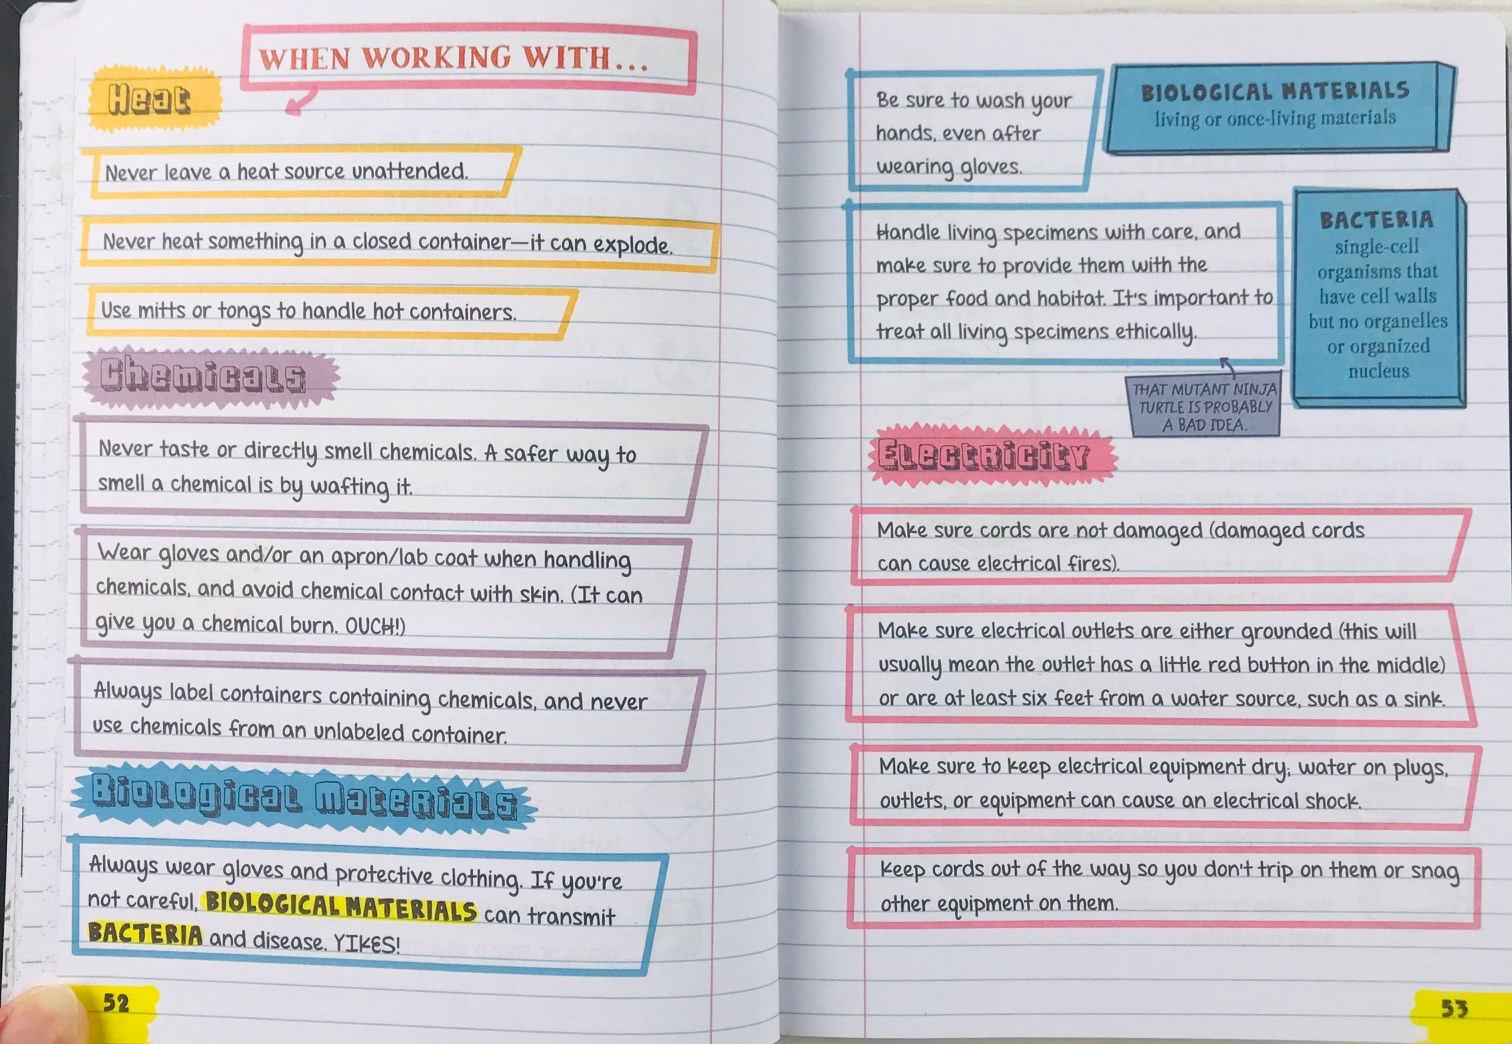 WHEN WORKING WITH...
Heat
Never leave a heat source unattended.
Never heat something in a closed container—it can explode.
Use mitts or tongs to handle hot containers.
Chemicals
Never taste or directly smell chemicals. A safer way to
smell a chemical is by wafting it.
Wear gloves and/or an apron/lab coat when handling
chemicals, and avoid chemical contact with skin. (It can
give you a chemical burn. OUCH!)
Always label containers containing chemicals, and never
use chemicals from an unlabeled container.
Biological Materials
Always wear gloves and protective clothing. If you're
not careful, BIOLOGICAL MATERIALS can transmit
BACTERIA and disease. YIKES!
52
Be sure to wash your
hands, even after
wearing gloves.
BIOLOGICAL MATERIALS
living or once-living materials
Handle living specimens with care, and
make sure to provide them with the
proper food and habitat. It's important to
treat all living specimens ethically.
BACTERIA
single-cell
organisms that
have cell walls
but no organelles
or organized
nucleus
THAT MUTANT NINJA
TURTLE IS PROBABLY
A BAD IDEA.
Electricity
Make sure cords are not damaged (damaged cords
can cause electrical fires).
Make sure electrical outlets are either grounded (this will
usually mean the outlet has a little red button in the middle)
or are at least six feet from a water source, such as a sink.
Make sure to keep electrical equipment dry; water on plugs,
outlets, or equipment can cause an electrical shock.
Keep cords out of the way so you don't trip on them or snag
other equipment on them.
53